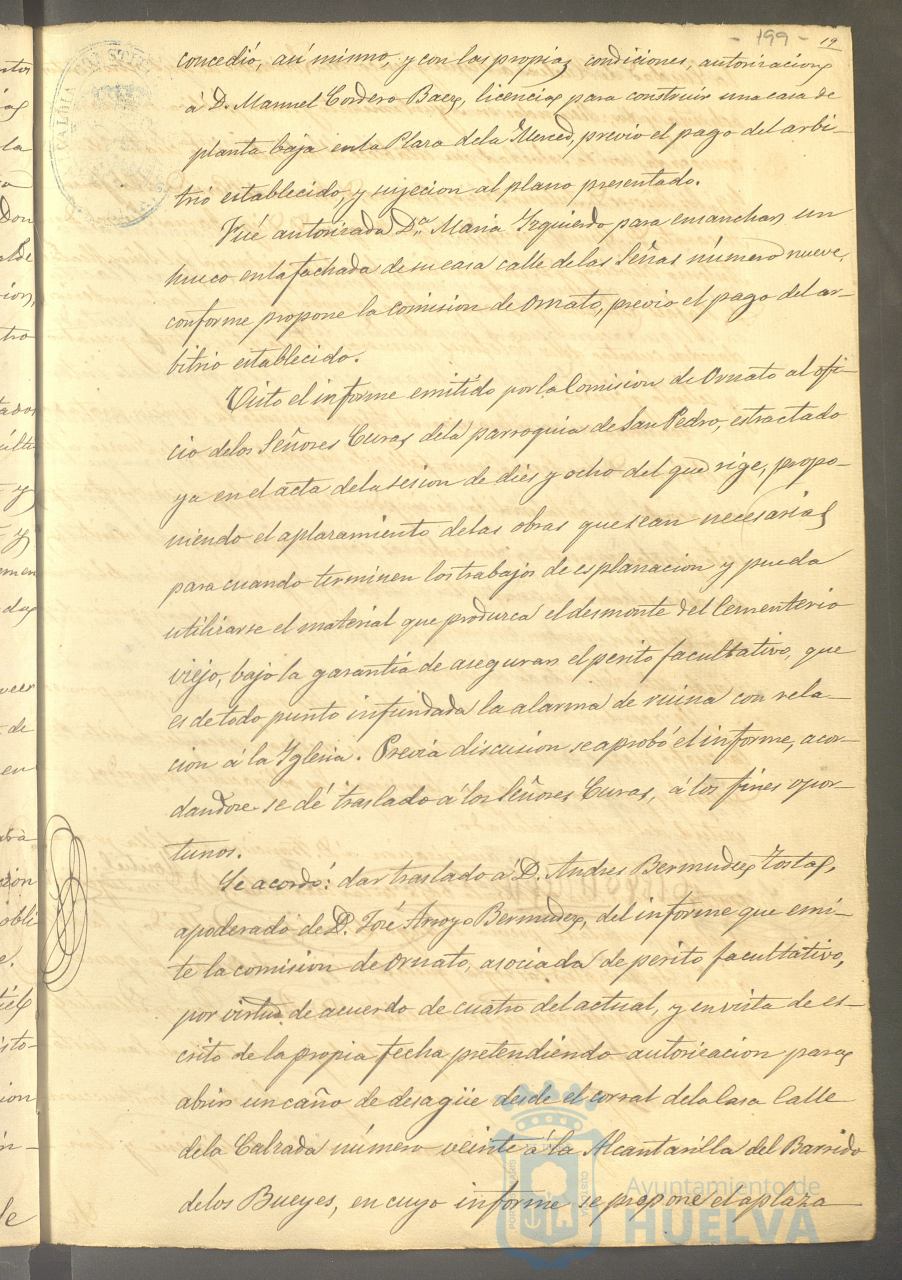 - 199 - 19
concedió, así mismo, y con las propias condiciones, autorizacion
á D. Manuel Cordero Baez, licencia para construir una casa de
planta baja en la Plaza de la Merced, previo el pago del arbi-
trio establecido, y sujecion al plano presentado.
Fué autorizada D.ª Maria Izquierdo para ensanchar un
hueco en la fachada de su casa calle de las Señas número nueve,
conforme propone la Comision de Ornato, previo el pago del ar-
bitrio establecido.
Visto el informe emitido por la Comision de Ornato al ofi-
cio de los Señores Curas de la parroquia de San Pedro, estractado
ya en el acta de la sesion de dies y ocho del que rige, propo-
niendo el aplazamiento de las obras que sean necesarias
para cuando terminen los trabajos de esplanacion y pueda
utilizarse el material que produzca el desmonte del Cementerio
viejo, bajo la garantía de asegurar el perito facultativo, que
es de todo punto infundada la alarma de ruina con rela-
cion á la Iglesia. Previa discusion se aprobó el informe, acor-
dandose se dé traslado á los Señores Curas, á los fines opor-
tunos.
Se acordó: dar traslado á D. Andres Bermudez Tostas,
apoderado de D. José Arroyo Bermudez, del informe que emi-
te la comision de Ornato, asociada de perito facultativo,
por virtud de acuerdo de cuatro del actual, y en vista de es-
crito de la propia fecha pretendiendo autoricacion para
abrir un caño de desagüe desde el corral de la Casa Calle
de la Calzada número veinte á la Alcantarilla del Barrido
de los Bueyes, en cuyo informe se propone el aplaza
Ayuntamiento de
HUELVA